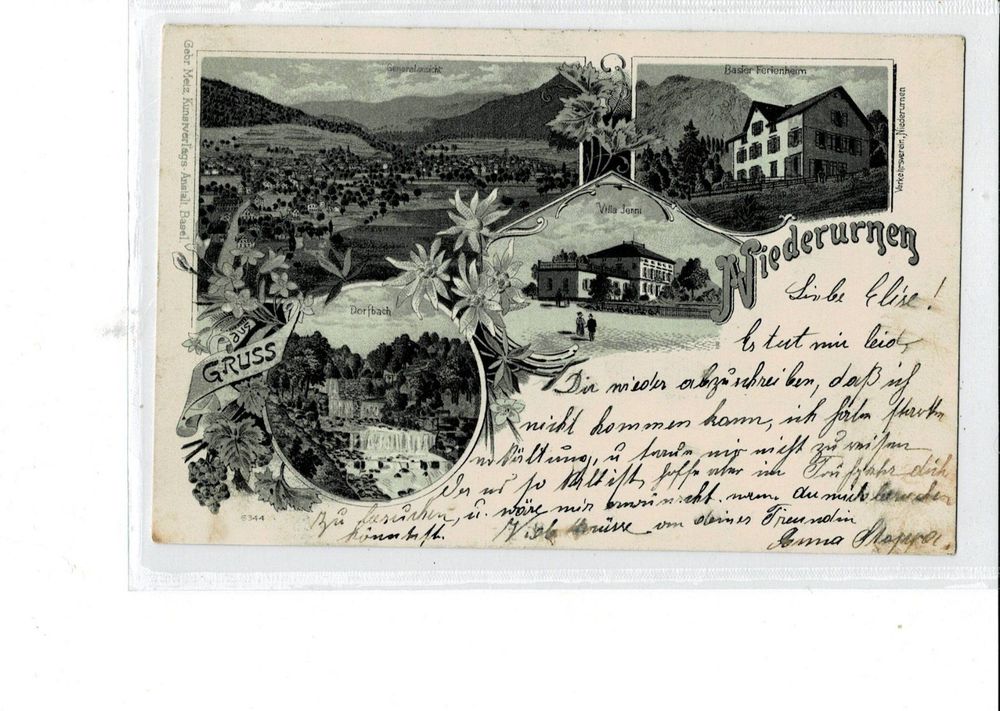 Gebr. Metz, Kunstverlags-Anstalt Basel.
Generalansicht
Basler Ferienheim
Verkehrsverein, Niederurnen
Villa Jenni
Dorfbach
GRUSS
aus
Niederurnen
Liebe Elise!
Es tut mir leid,
Dir wieder abzuschreiben, daß ich
nicht kommen kann, ich habe starke
Erkältung, u traue mir nicht zu reisen
da es so kalt ist, hoffe aber im Frühjahr dich
zu besuchen, u. wäre mir erwünscht wenn du mich besuchen
könntest. Viele Grüsse von deiner Freundin
Anna
6344